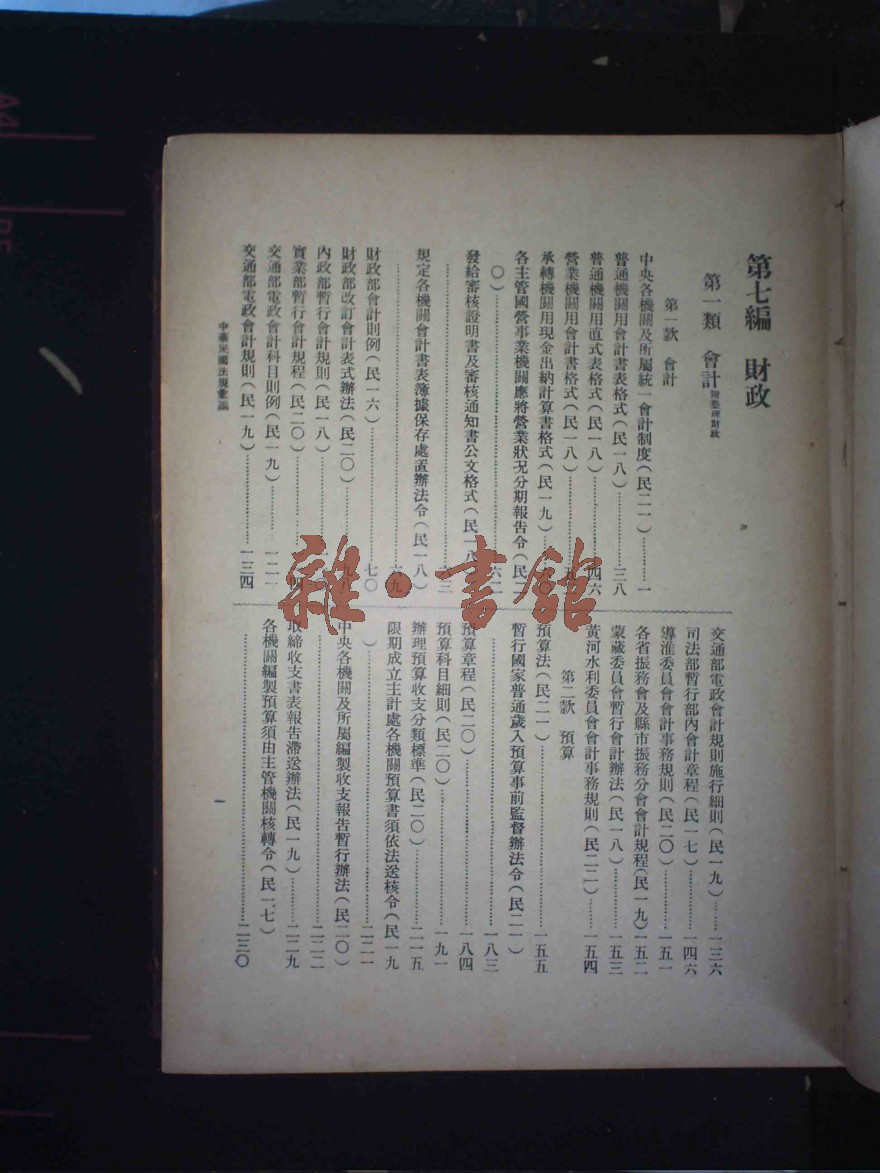 第七編　財政
第一類　會計附整理財政
第一款　會計
中央各機關及所屬統一會計制度（民二一）………一
普通機關用會計書表格式（民一八）………三八
普通機關用直式表格式（民一八）………四六
營業機關用會計書格式（民一八）………五
承轉機關用現金出納計算書格式（民一九）………〇
各主管國營事業機關應將營業狀況分期報告令（民二
〇）………六二
發給審核證明書及審核通知書公文格式（民一八
………六三
規定各機關會計書表簿據保存處置辦法令（民一八）
………六九
財政部會計則例（民一六）………七〇
財政部改訂會計表式辦法（民二〇）………九八
內政部暫行會計規則（民一八）………一
實業部暫行會計規程（民二〇）………四
交通部電政會計科目則例（民一九）………一二一
交通部電政會計規則（民一九）………一三四
交通部電政會計規則施行細則（民一九）………一三六
司法部暫行部內會計章程（民一七）………一四六
導淮委員會會計事務規則（民二〇）………一五一
各省振務會及縣市振務分會會計規程（民一九）一五二
蒙藏委員會暫行會計辦法（民一八）………一五三
黃河水利委員會會計事務規則（民二二）………一五四
第二款　預算
預算法（民二一）………一五五
暫行國家普通歲入預算事前監督辦法令（民二一）
………一八三
預算章程（民二〇）………一八四
預算科目細則（民二〇）………一九一
辦理預算收支分類標準（民二〇）………二一五
限期成立主計處各機關預算書須依法送核令（民一九
）………二二一
中央各機關及所屬編製收支報告暫行辦法（民二〇）
………二二二
取締收支書表報告滯送辦法（民一九）………二二九
各機關編製預算須由主管機關核轉令（民一七）
………二三〇
中華民國法規彙編
一
雜·書館